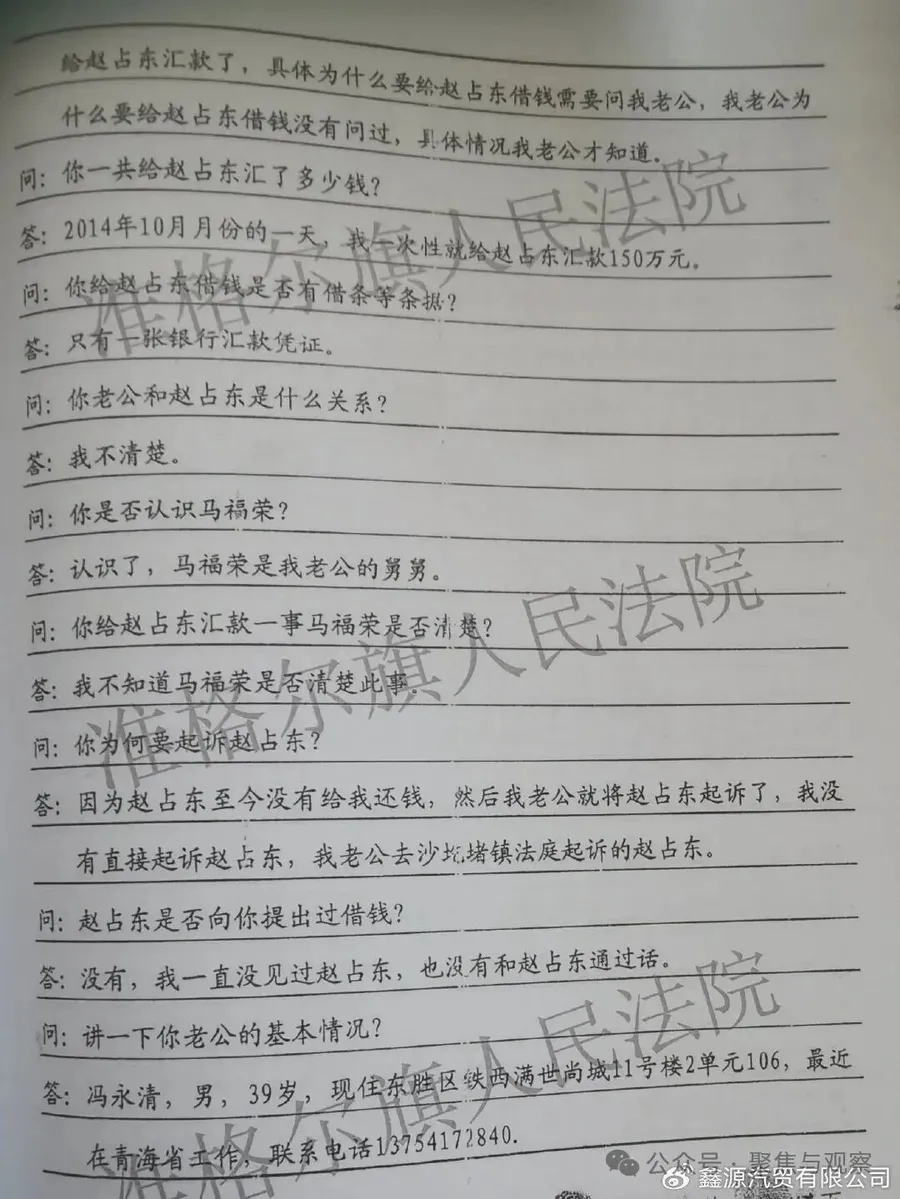 给赵占东汇款了，具体为什么要给赵占东借钱需要问我老公，我老公为
什么要给赵占东借钱没有问过，具体情况我老公才知道。
问：你一共给赵占东汇了多少钱？
答：2014年10月月份的一天，我一次性就给赵占东汇款150万元。
问：你给赵占东借钱是否有借条等条据？
答：只有一张银行汇款凭证。
问：你老公和赵占东是什么关系？
答：我不清楚。
问：你是否认识马福荣？
答：认识了，马福荣是我老公的舅舅。
问：你给赵占东汇款一事马福荣是否清楚？
答：我不知道马福荣是否清楚此事。
问：你为何要起诉赵占东？
答：因为赵占东至今没有给我还钱，然后我老公就将赵占东起诉了，我没
有直接起诉赵占东，我老公去沙圪堵镇法庭起诉的赵占东。
问：赵占东是否向你提出过借钱？
答：没有，我一直没见过赵占东，也没有和赵占东通过话。
问：讲一下你老公的基本情况？
答：冯永清，男，39岁，现住东胜区铁西满世尚城11号楼2单元106，最近
在青海省工作，联系电话13754172840.
准格尔旗人民法院
准格尔旗人民法院
准格尔旗人民法院
公众号·聚焦与观察
@鑫源汽贸有限公司